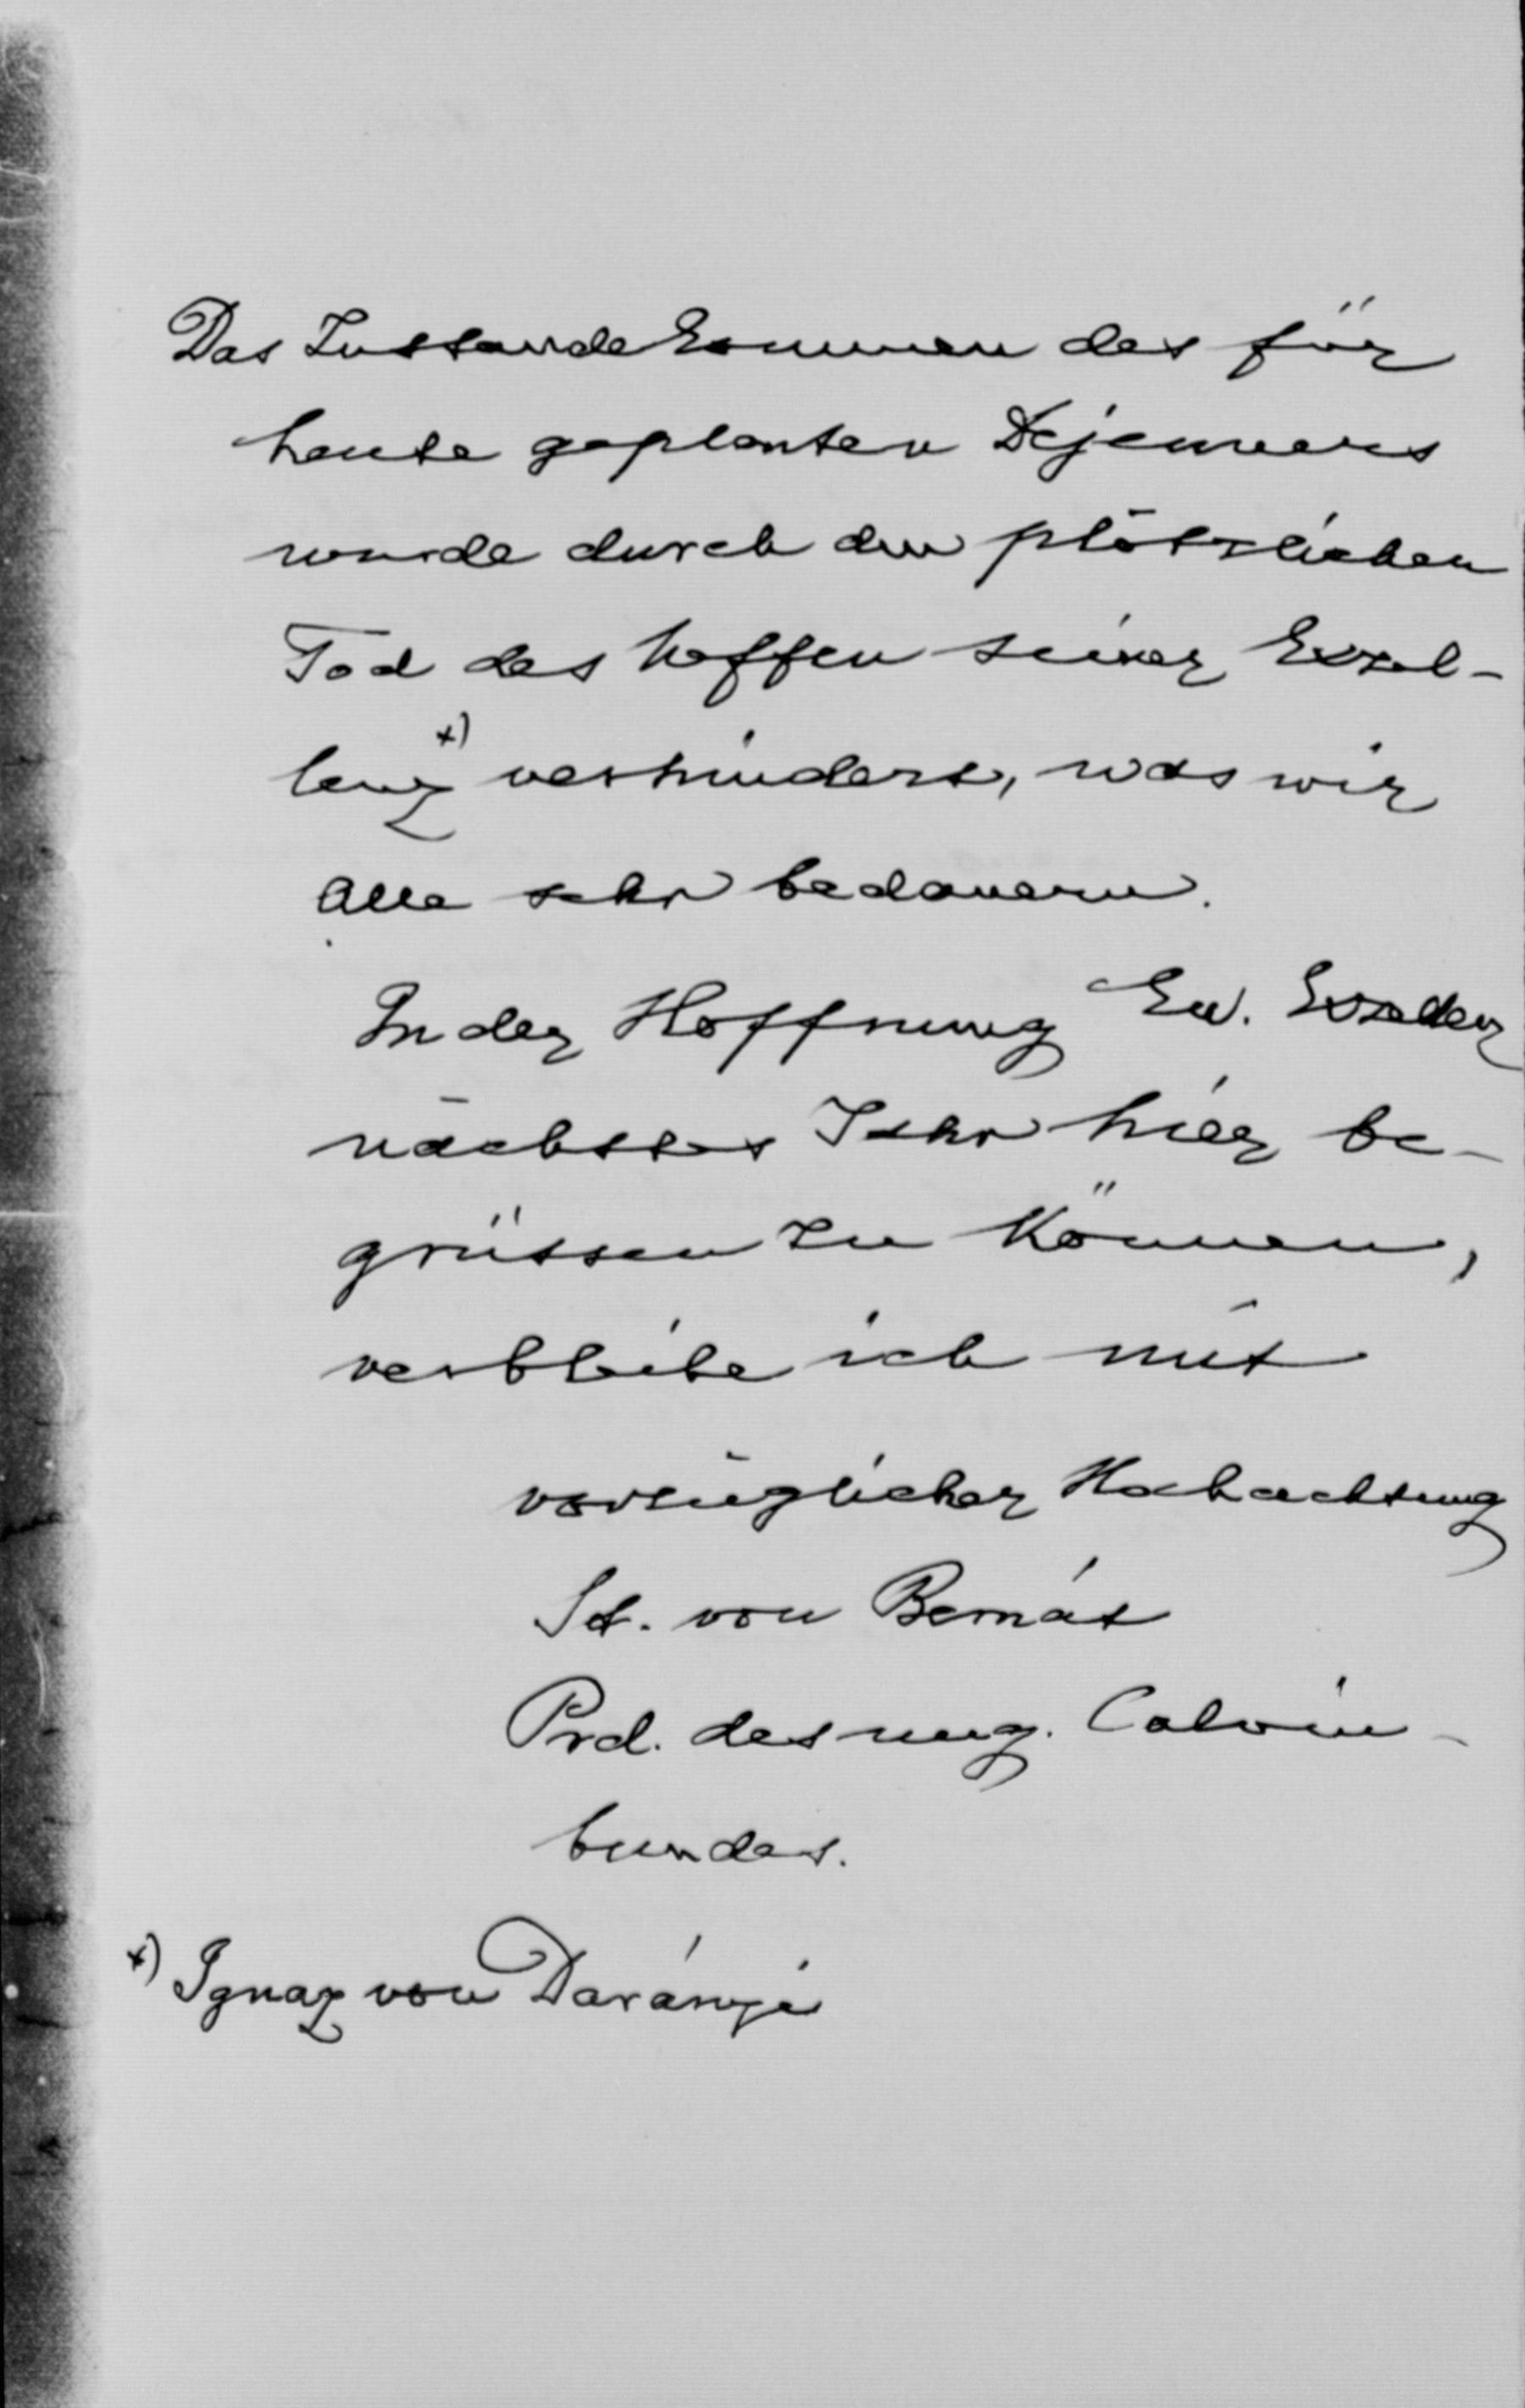 Das Zustandekommen des für
heute geplanten Dejeuners
wurde durch den plötzlichen
Tod des Neffen seiner Exzel-
lenz x) verhindert, was wir
alle sehr bedauern.
In der Hoffnung Ew. Exzellenz
nächstes Jahr hier be-
grüssen zu können,
verbleibe ich mit
vorzüglicher Hochachtung
St. von Bernát
Prd. des ung. Calvin-
bundes.
x) Ignaz von Darányi